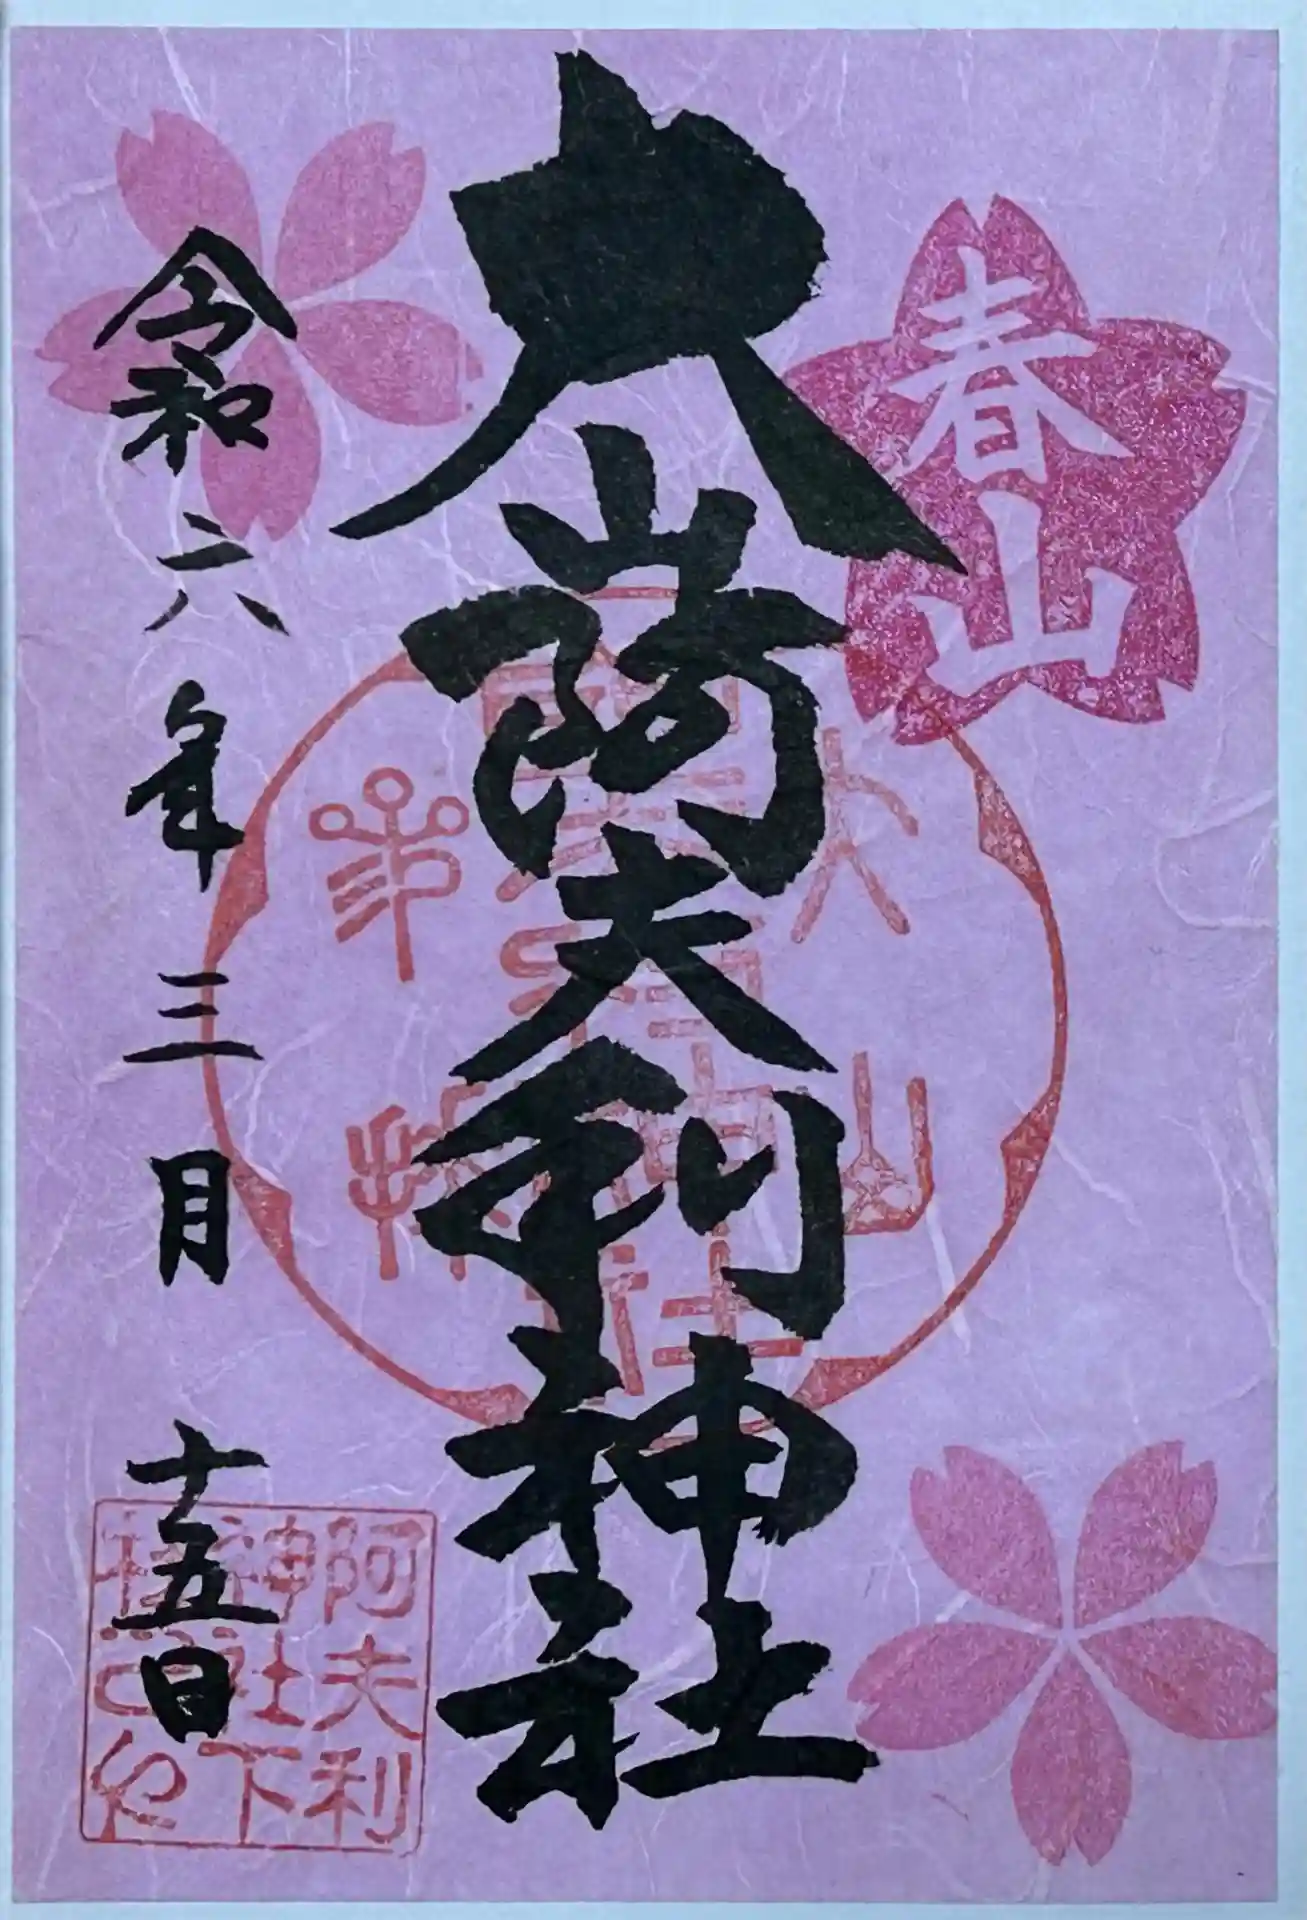 春山
大山阿夫利神社
令和六年三月十五日
阿夫利
神社下